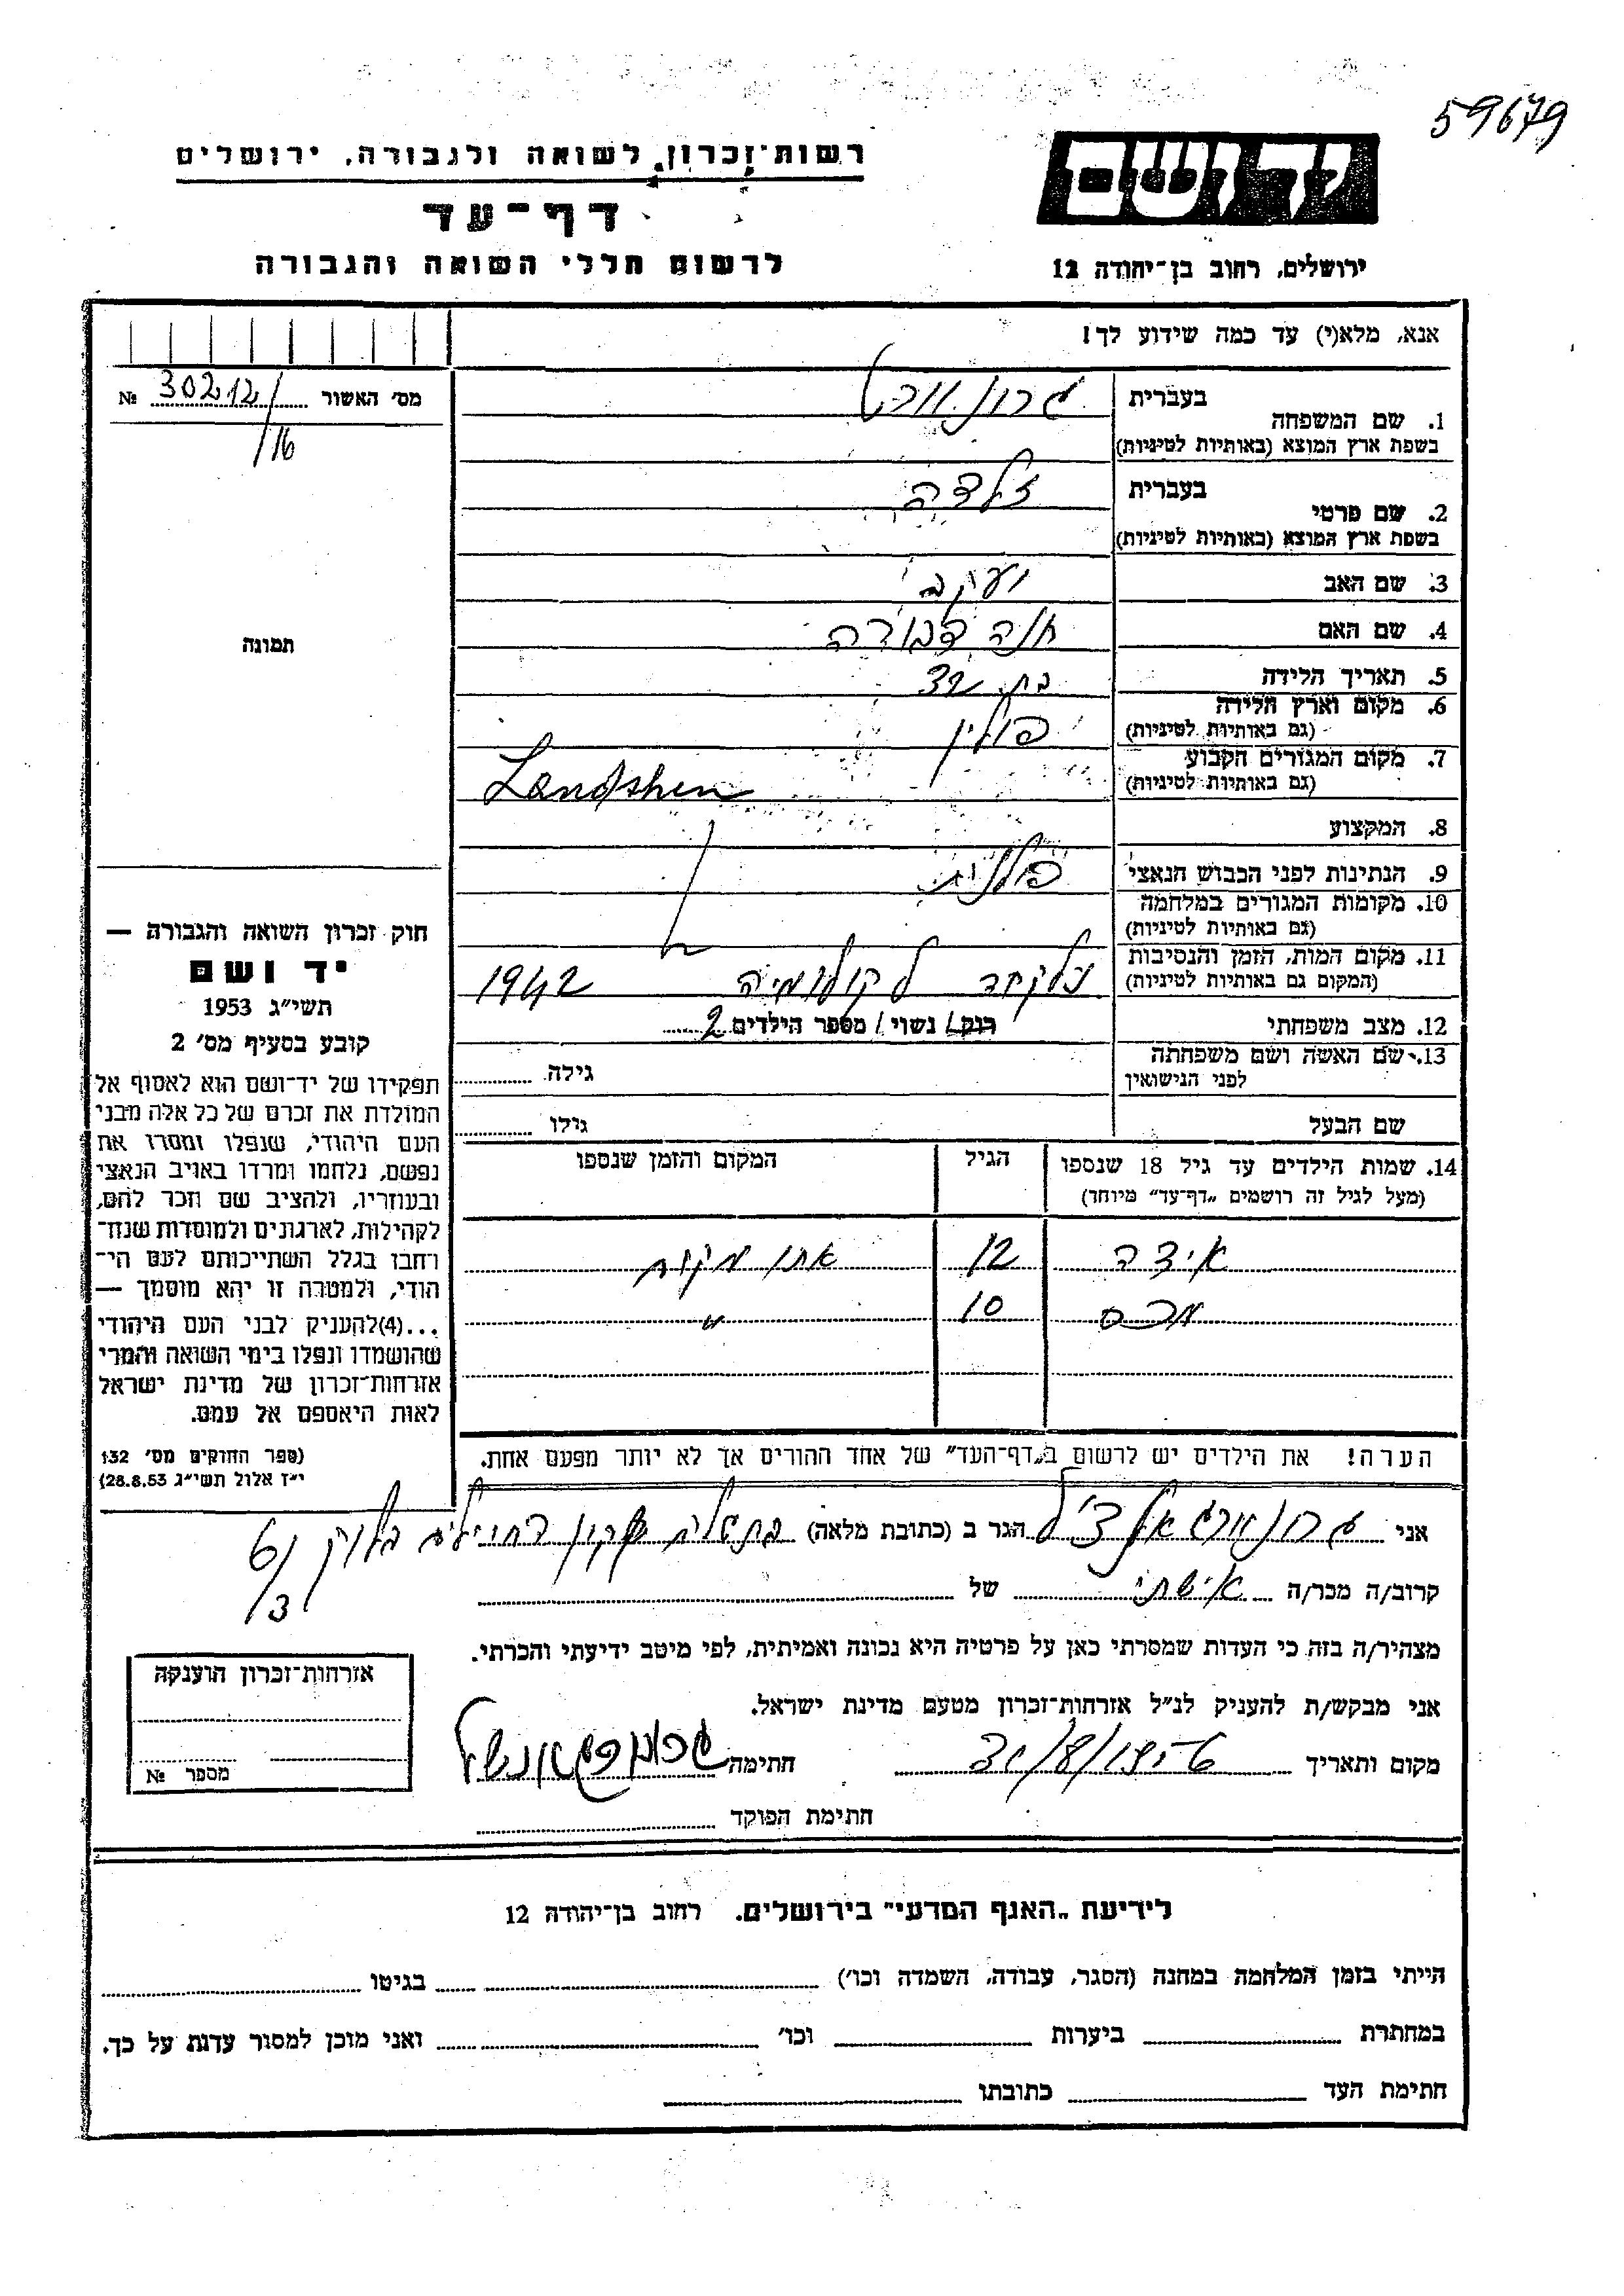 59679
יד ושם
רשות־זכרון לשואה ולגבורה, ירושלים
דף־עד
לרשום חללי השואה והגבורה
ירושלים, רחוב בן־יהודה 12
אנא, מלא(י) עד כמה שידוע לך!
מס׳ האשור 30212 №
/16
תמונה
1. שם המשפחה
בעברית
בשפת ארץ המוצא (באותיות לטיניות)
2. שם פרטי
בעברית זלדה
בשפת ארץ המוצא (באותיות לטיניות)
3. שם האב יעקב
4. שם האם חנה דבורה
5. תאריך הלידה בת 32
6. מקום וארץ הלידה פולין
(גם באותיות לטיניות)
7. מקום המגורים הקבוע
(גם באותיות לטיניות)
8. המקצוע
9. הנתינות לפני הכבוש הנאצי פולנית
10. מקומות המגורים במלחמה
(גם באותיות לטיניות)
11. מקום המות, הזמן והנסיבות 1942
(המקום גם באותיות לטיניות)
12. מצב משפחתי רוק/ נשוי/ מספר הילדים 2
13. שם האשה ושם משפחתה גילה
לפני הנישואין
שם הבעל גילו
14. שמות הילדים עד גיל 18 שנספו הגיל המקום והזמן שנספו
(מעל לגיל זה רושמים „דף־עד״ מיוחד)
12
10 "
הערה! את הילדים יש לרשום ב„דף־העד״ של אחד ההורים אך לא יותר מפעם אחת.
חוק זכרון השואה והגבורה —
יד ושם
תשי״ג 1953
קובע בסעיף מס׳ 2
תפקידו של יד־ושם הוא לאסוף אל
המולדת את זכרם של כל אלה מבני
העם היהודי, שנפלו ומסרו את
נפשם, נלחמו ומרדו באויב הנאצי
ובעוזריו, ולהציב שם וזכר להם,
לקהילות, לארגונים ולמוסדות שנח־
רחבו בגלל השתייכותם לעם הי־
הודי, ולמטרה זו יהא מוסמך —
...(4)להעניק לבני העם היהודי
שהושמדו ונפלו בימי השואה והמרי
אזרחות־זכרון של מדינת ישראל
לאות היאספם אל עמם.
(ספר החוקים מס׳ 132
י״ז אלול תשי״ג 28.8.53)
אני הגר ב (כתובת מלאה)
קרוב/ה מכר/ה אישתי של
מצהיר/ה בזה כי העדות שמסרתי כאן על פרטיה היא נכונה ואמיתית, לפי מיטב ידיעתי והכרתי.
אני מבקש/ת להעניק לנ״ל אזרחות־זכרון מטעם מדינת ישראל.
מקום ותאריך חתימה
חתימת הפוקד
אזרחות־זכרון הוענקה
מספר №
לידיעת „האגף המדעי״ בירושלים. רחוב בן־יהודה 12
הייתי בזמן המלחמה במחנה (הסגר, עבודה, השמדה וכו׳) בגיטו
במחתרת ביערות וכו׳ ואני מוכן למסור עדות על כך.
חתימת העד כתובתו